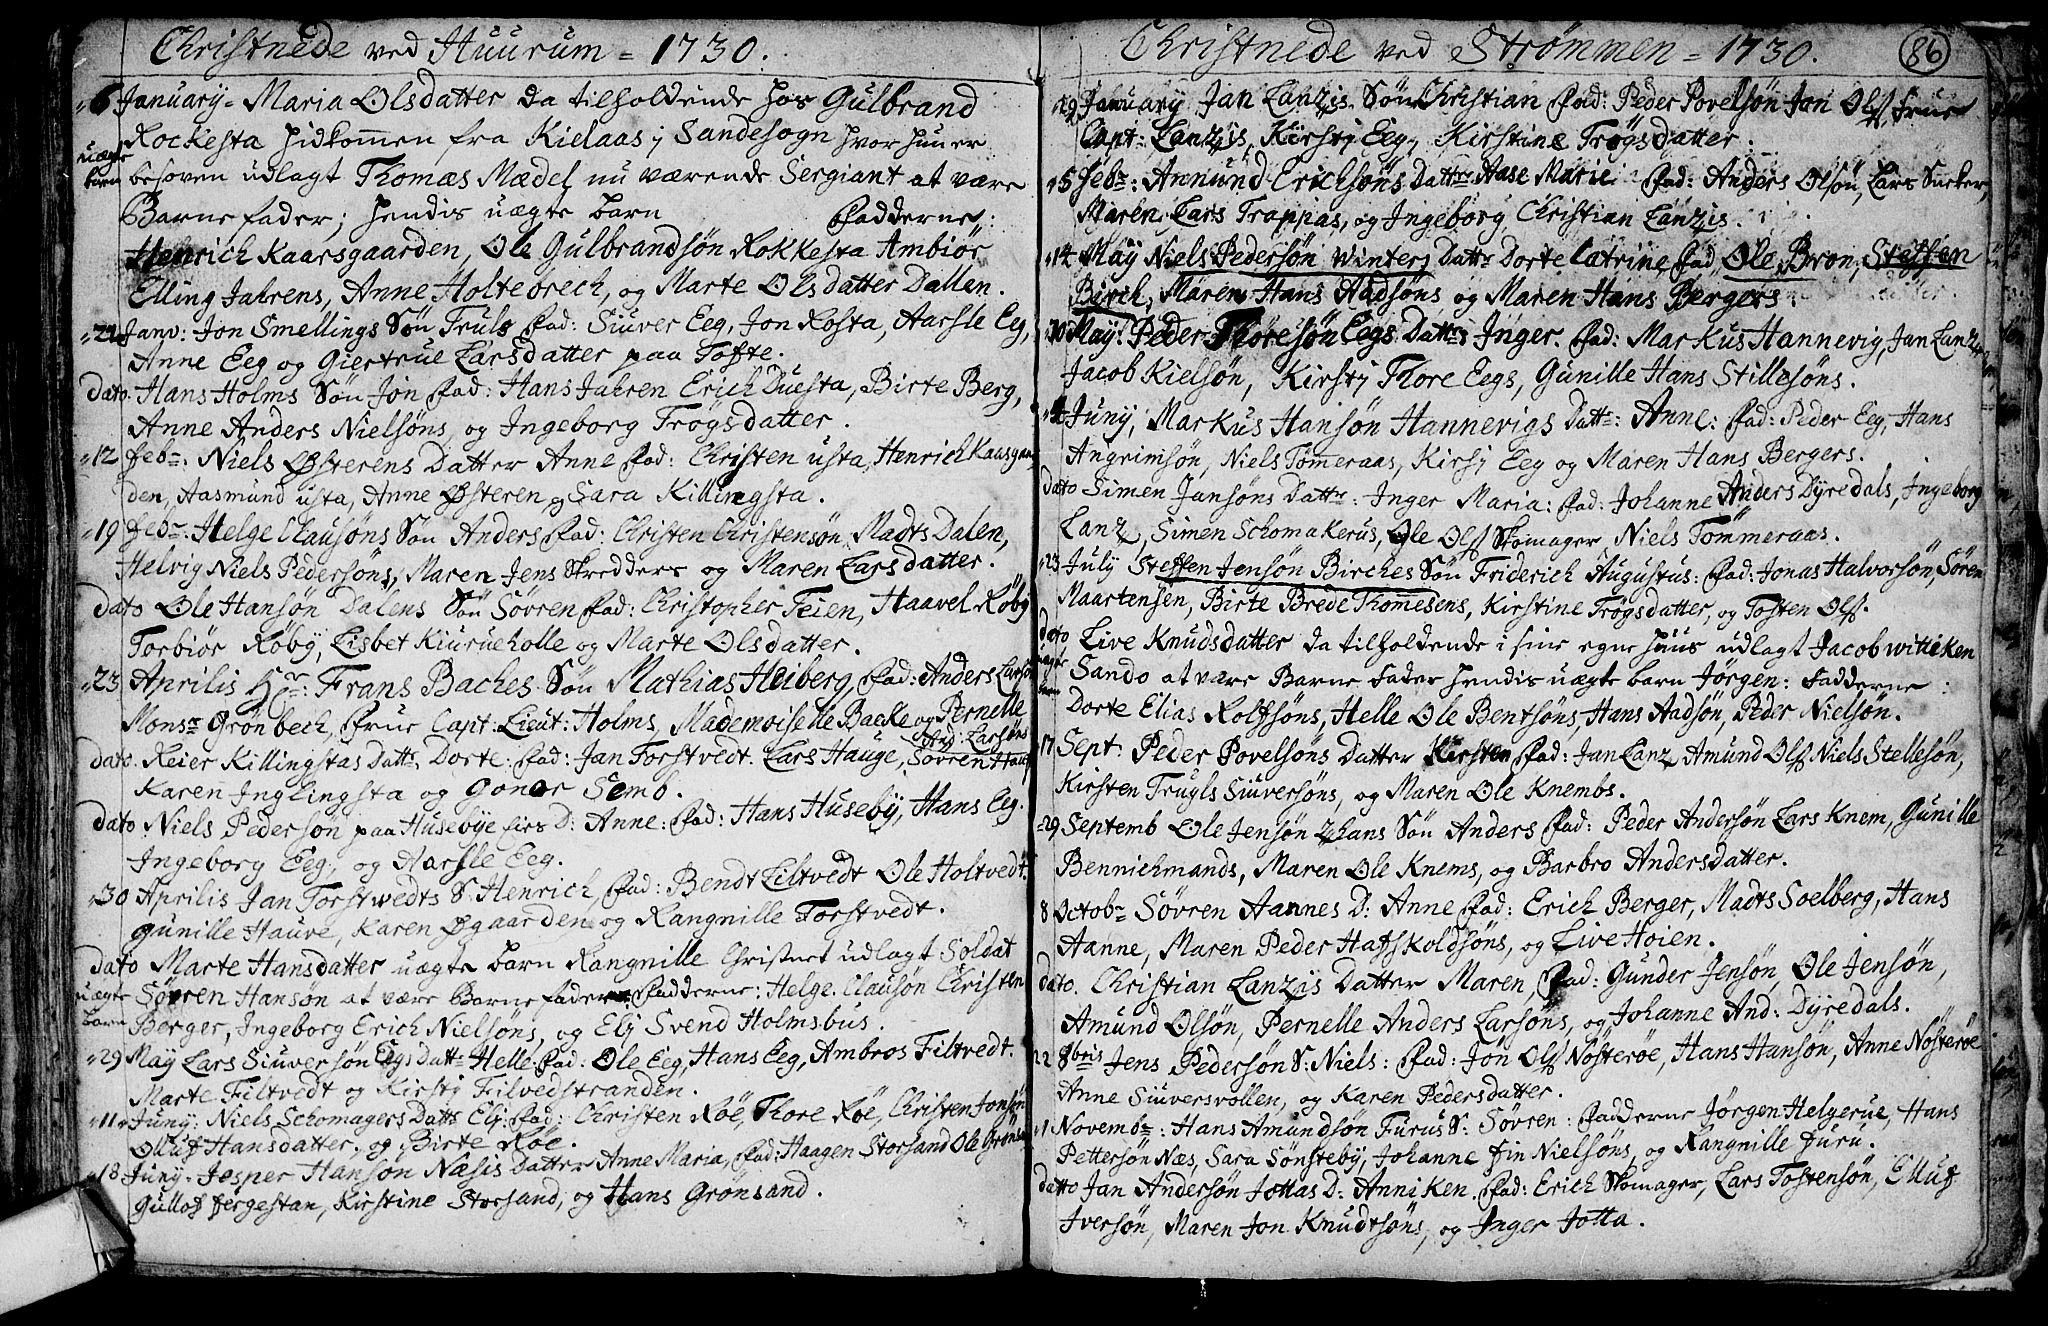 Christnede ved Huurum = 1730.
6 January = Maria Olsdatter da tilholdende hos Gulbrand
Rockesta hidkommen fra Kielaas j Sandesogn hvor hun er
uægte barn
besoven udlagt Thomas Mædel nu værende Sergiant at være
Barne fader; hendis uægte barn Fadderne:
Henrich Kaarsgaarden, Ole Gulbrandsøn Rokkesta Ambiør
Elling Jahrens, Anne Holtebrech, og Marte Olsdatter Dallen.
22 Janv: Jon Smellings Søn Truls Fad: Siuver Eeg, Jon Rosta, Aarsle Eeg,
Anne Eeg og Giertrue Larsdatter paa Tofte.
dato. Hans Holms Søn Jon Fad: Hans Jahren Erich Duesta, Birte Berg,
Anne Anders Nielsøns, og Ingeborg Trøgsdatter.
12 Feb: Niels Østerens Datter Anne Fad: Christen usta, Henrich Kaasgaar
den, Aasmund usta, Anne Østeren, og Sara Killingsta.
19 Feb: Helge Clausøns Søn Anders Fad: Christen Christensøn, Madts Dalen,
Helvig Niels Pedersøns, Maren Jens Skredders og Maren Larsdatter.
dato Ole Hansøn Dalens Søn Søvren Fad: Christopher Teien, Haavel Røby
Torbiør Røby, Lisbet Kiurueholle og Marte Olsdatter.
23 Aprilis Hr: Frans Baches Søn Mathias Heiberg, Fad: Anders Larsøn
Monsr Grønbech, Frue Capt: Lieut: Holms, Mademoiselle Backe og Pernelle
And: Larsøns
dato. Reier Killingstas Datt: Dorte. Fad: Jan Torstvedt. Lars Hauge, Søvren Hauge
Karen Inglingsta og Gonor Semb.
dato Niels Pedersøn paa Husebye hirs D: Anne: Fad: Hans Huseby, Hans Eeg.
Ingeborg Eeg, og Aarsle Eeg.
30 Aprilis Jan Torstwedts S: Henrich, Fad: Bendt Liltvedt Ole Holtvedt.
Gunille Hauve, Karen Øgaarden og Rangnille Torstvedt.
dato Marte Hansdatter uægte barn Rangnille Christnet udlagt Soldat
uægte barn
Søvren Hansøn at være Barne fader Fadderne: Helge Clausøn Christen
Berger, Ingeborg Erich Nielsøns, og Elj Svend Holmsbus.
29 Maÿ Lars Siuversøn Eegs Datt: Helle. Fad: Ole Eeg, Hans Eeg, Ambros Filtvedt.
Marte Filtvedt og Kirstj Filvedstranden.
11 Junÿ: Niels Schomagers Datt: Elj: Fad: Christen Røe, Thore Røe, Christen Jonsøn
Olluf Hansdatter, og Birte Røe.
18 Junÿ. Jesper Hansøn Næsis Datter Anne Maria, Fad: Haagen Storsand Ole Grønsand
Gullof fergestan, Kirstine Storsand, og Hans Grønsand.
Christnede ved Strømmen = 1730.
86
29 January Jan Lanzis Søn Christian Fad: Peder Povelsøn Jon Ols, Frue
Capt: Lanzis, Kirstj Eeg, Kirstine Trøgsdatter.
5 Feb: Annund Erichsøns Datter Aase Marie Fad: Anders Olsøn, Lars Sucker,
Maren Lars Trappias, og Ingeborg Christian Lanzis.
14 Maÿ Niels Pedersøn Winters Datt: Dorte Catrine, Fad: Ole Bron, Steffen
Birch, Maren Hans Aadsøns og Maren Hans Bergers.
30 Maÿ: Peder Thoresøn Eegs Datt: Inger. Fad: Markus Hannevig, Jan Lanz,
Jacob Kielsøn, Kirstj Thore Eegs, Gunille Hans Stillesøns.
4 Junÿ, Markus Hansøn Hannevigs Datt: Anne: Fad: Peder Eeg, Hans
Angrimsøn, Niels Tømeraas, Kirstj Eeg og Maren Hans Bergers.
dato Simen Jansøns Datt: Inger Maria: Fad: Johanne Anders Dyredals, Ingeborg
Lanz, Simen Schomakerus, Ole Ols Skomager Niels Tømmeraas.
23 Julÿ Steffen Jensøn Birches Søn Friderich Augustus: Fad: Jonas Halvorsøn, Søren
Maartensen, Birte Brede Thomesens, Kirstine Trøgsdatter, og Tosten Ols.
dato Live Knudsdatter da tilholdende i sine egne huus udlagt Jacob wittiken
uægte barn
Sando at være Barne Fader hendis uægte barn Jørgen: Fadderne:
Dorte Elias Rolfsøns, Helle Ole Bentsøns, Hans Aadsøn, Peder Nielsøn.
17 Sept: Peder Povelsøns Datter Kirsten Fad: Jan Lanz Amund Ols Niels Stellesøn,
Kirsten Trugls Siuversøns, og Maren Ole Knembs.
29 Septemb Ole Jensøn hans Søn Anders Fad: Peder Andersøn Lars Knem, Gunille
Bennichmands, Maren Ole Knems, og Barbro Andersdatter.
8 Octobr Søvren Aannes D: Anne Fad: Erich Berger, Madts Soelberg, Hans
Aanne, Maren Peder Hafskoldsøns, og Live Høien.
dato. Christian Lanzis Datter Maren, Fad: Gunder Jensøn, Ole Jensøn,
Amund Olsøn, Pernelle Anders Larsøns, og Johanne And: Dyredals.
22 8bris Jens Pedersøn S: Niels: Fad: Jon Ols Nøsterøe, Hans Hansøn, Anne Nøsterøe
Anne Siuversvollen, og Karen Pedersdatter.
1 Novemb: Hans Amundsøn Furus S: Søvren: Fadderne Jørgen Helgerue, Hans
Pettersøn Næs, Sara Sønsteby, Johanne fin Nielsøns, og Rangnille Furu.
datto Jan Andersøn Jottas D: Anniken. Fad: Erich Skomager, Lars Tostensøn, Elluf
Iversøn, Maren Jon Knudtsøns, og Inger Jotta.